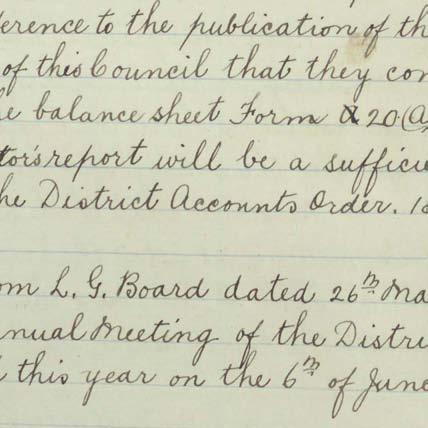 erence to the publication of th
of this Council that they con
e balance sheet Form A 20 (A
tor's report will be a sufficie
he District Accounts Order. 18
om L. G. Board dated 26th Ma
nnual Meeting of the Distri
this year on the 6th of June